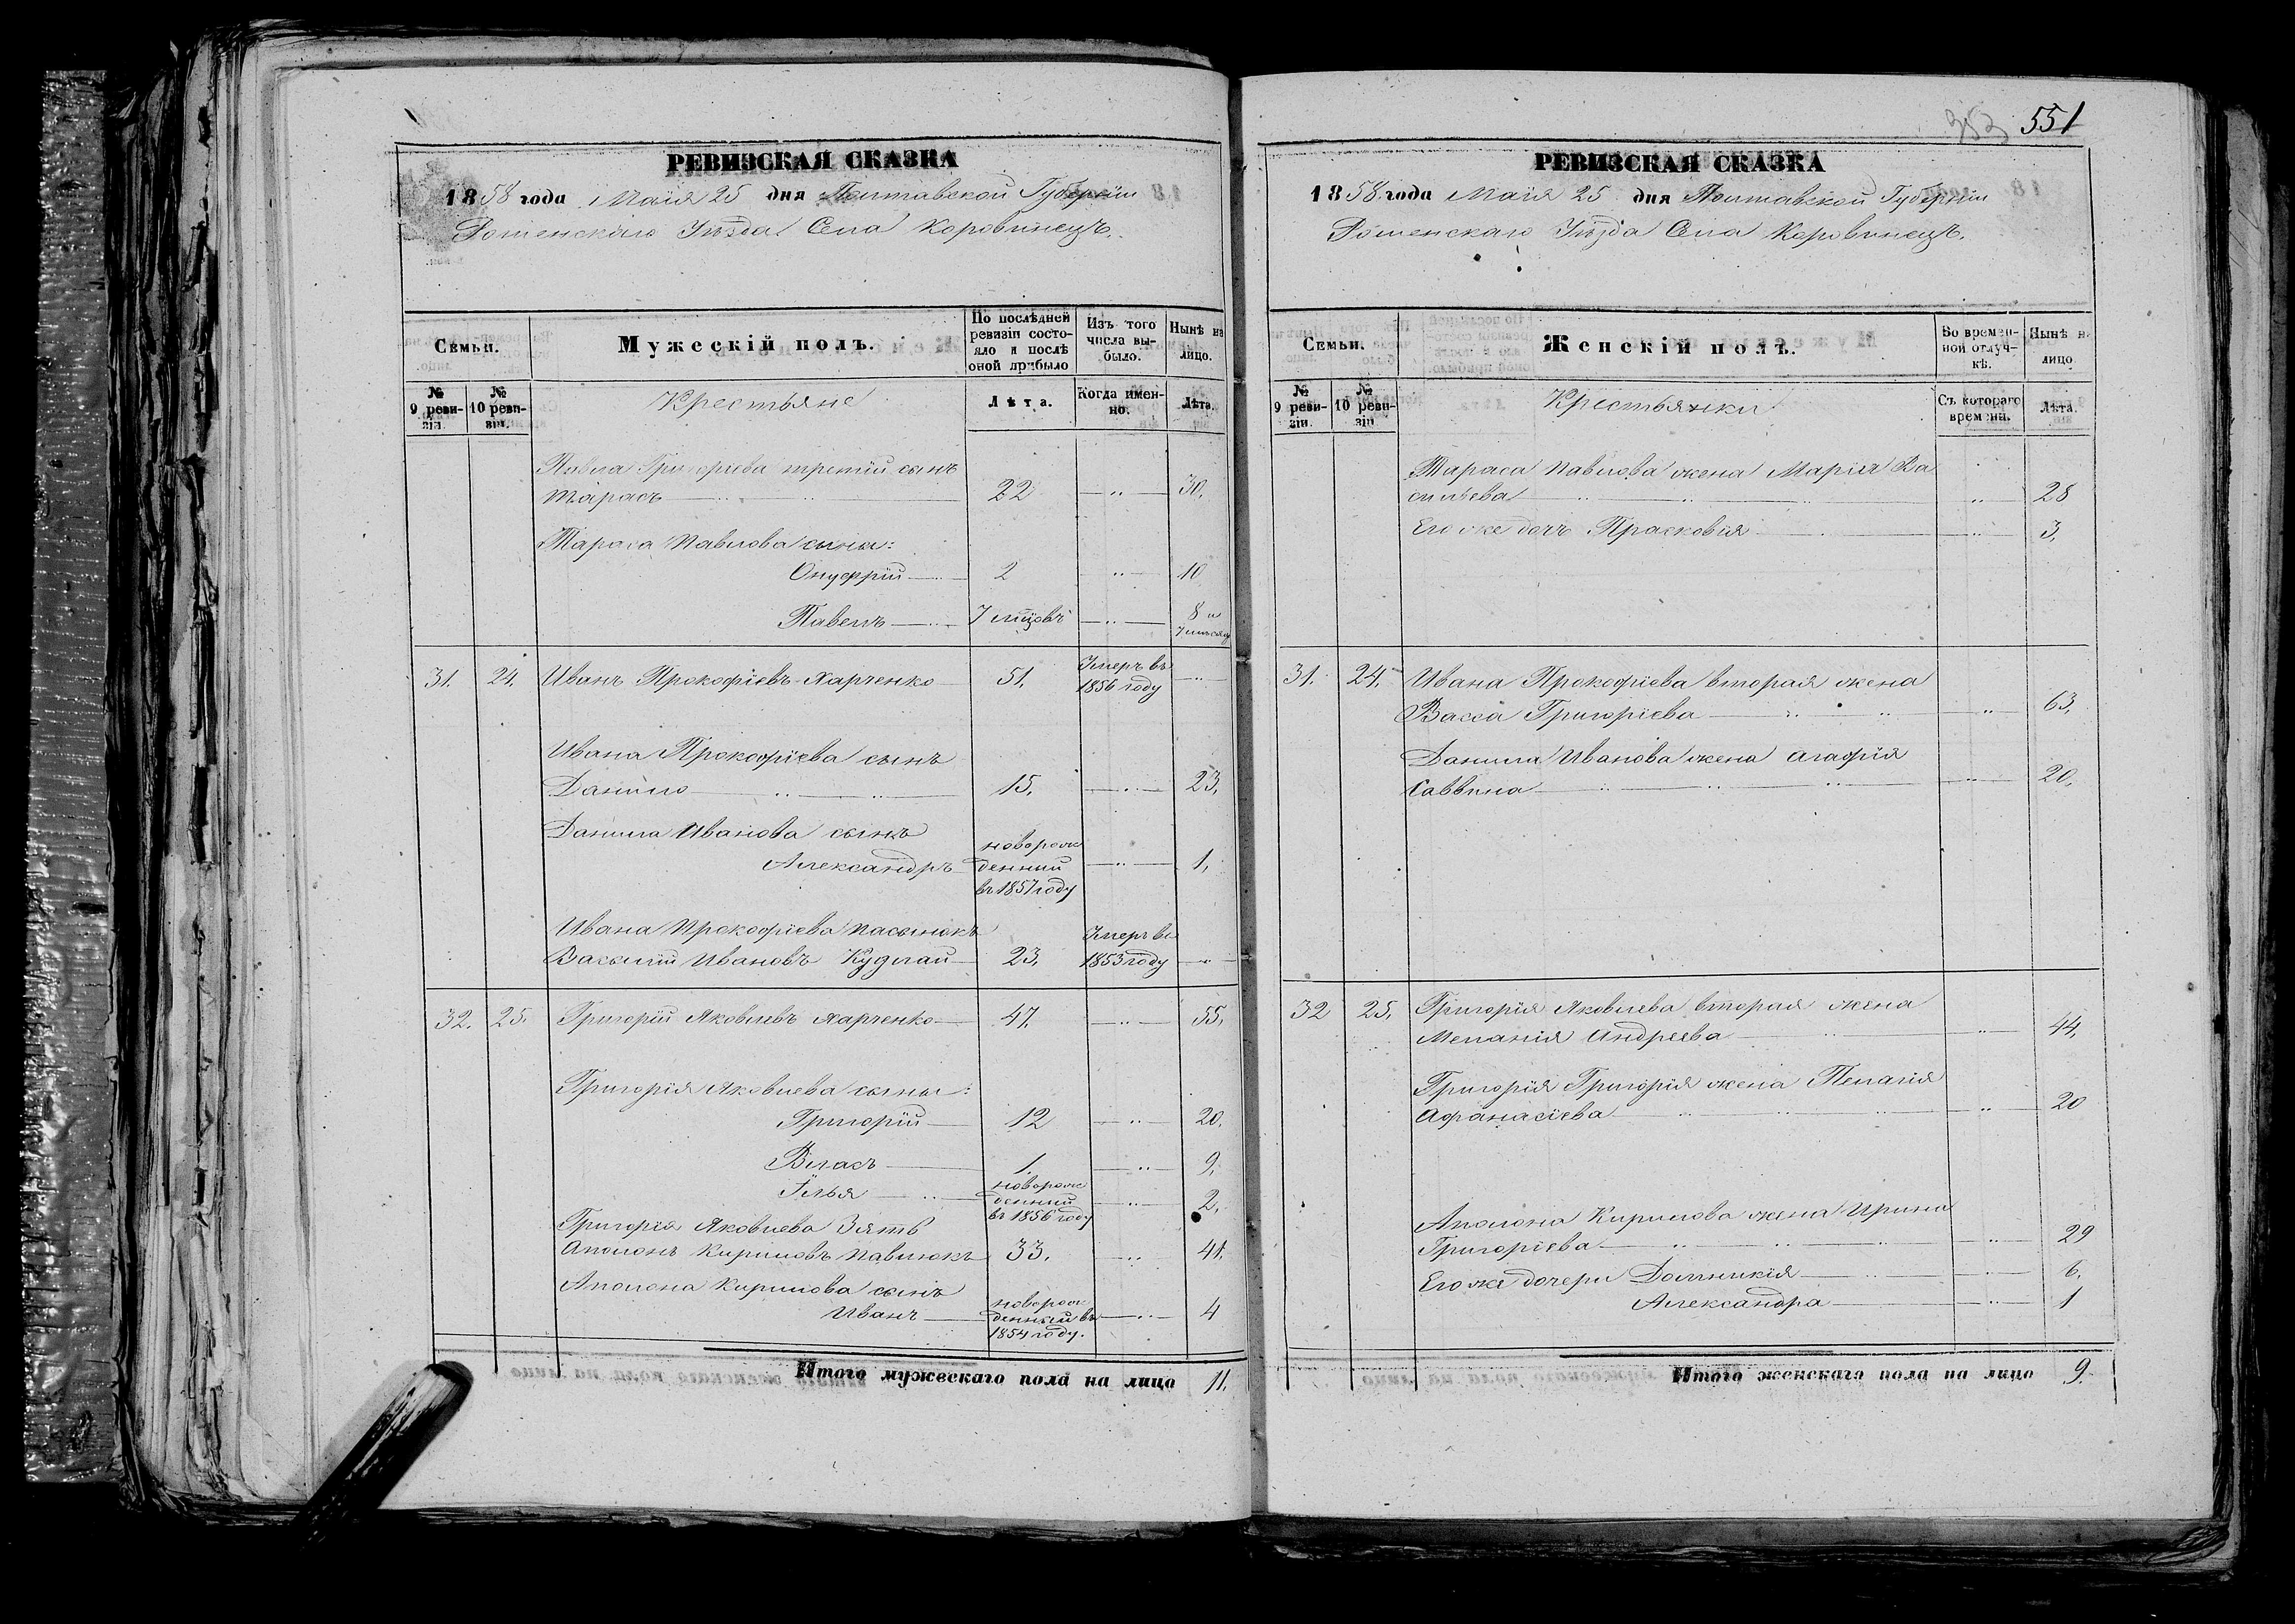 РЕВИЗСКАЯ СКАЗКА
1858 года Маія 25 дня Полтавской Губерніи
Роменскаго Уѣзда Села Коровинецъ.
Семьи.
Мужескій полъ.
По послѣдней ревизіи состояло и послѣ оной прибыло
Изъ того числа выбыло.
Нынѣ на лицо.
№ 9 ревизіи.
№ 10 ревизіи.
Крестьяне
Лѣта.
Когда именно.
Лѣта.
Павла Григорьева третій сынъ
Тарасъ 22 30.
Тараса Павлова сыны:
Онуфрій 2 10
Павелъ 7 мѣсяцовъ 8 и
31. 24. Иванъ Прокофіевъ Харченко 51. Умеръ въ 1856 году
Ивана Прокофіева сынъ
Данило 15. 23.
Данила Иванова сынъ
Александръ новорожденный въ 1857 году 1.
Ивана Прокофіева пасынокъ
Василій Ивановъ Кудлай 23. Умеръ въ 1853 году
32. 25. Григорій Яковлевъ Харченко 47. 55.
Григорія Яковлева сыны:
Григорій 12 20.
Власъ 1. 9.
Илья новорожденный въ 1856 году 2.
Григорія Яковлева Зять
Аполонъ Кириловъ Павлюкъ 33. 41.
Аполона Кирилова сынъ
Иванъ новорожденный въ 1854 году. 4
Итого мужескаго пола на лицо 11.
551
РЕВИЗСКАЯ СКАЗКА
1858 года Маія 25 дня Полтавской Губерніи
Роменскаго Уѣзда Села Коровинецъ.
Семьи.
Женскій полъ.
Во временной отлучкѣ.
Нынѣ на лицо
№ 9 ревизіи.
№ 10 ревизіи
Крестьянки
Съ котораго времени.
Лѣта.
Тараса Павлова жена Марія Ва
сильева 28
Его же дочь Прасковія 3.
31. 24. Ивана Прокофіева вторая жена
Васса Григоріева 63.
Данила Иванова жена Агафія
Саввина 20.
32 25. Григорія Яковлева вторая жена
Меланія Андреева 44.
Григорія Григорія жена Пелагія
Афанасіева 20
Аполона Кирилова жена Ирина
Григоріева 29
Его же дочери Домникія 6.
Александра 1
Итого женскаго пола на лицо 9.